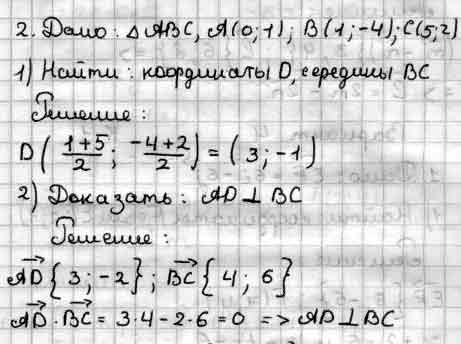 2. Дано: △ ABC, A(0;1); B(1;-4); C(5;2)
1) Найти: координаты D, середины BC
Решение:
D( (1+5)/2 ; (-4+2)/2 ) = (3;-1)
2) Доказать: AD ⊥ BC
Решение:
AD→{3;-2}; BC→{4; 6}
AD→·BC→ = 3·4-2·6=0 => AD⊥BC